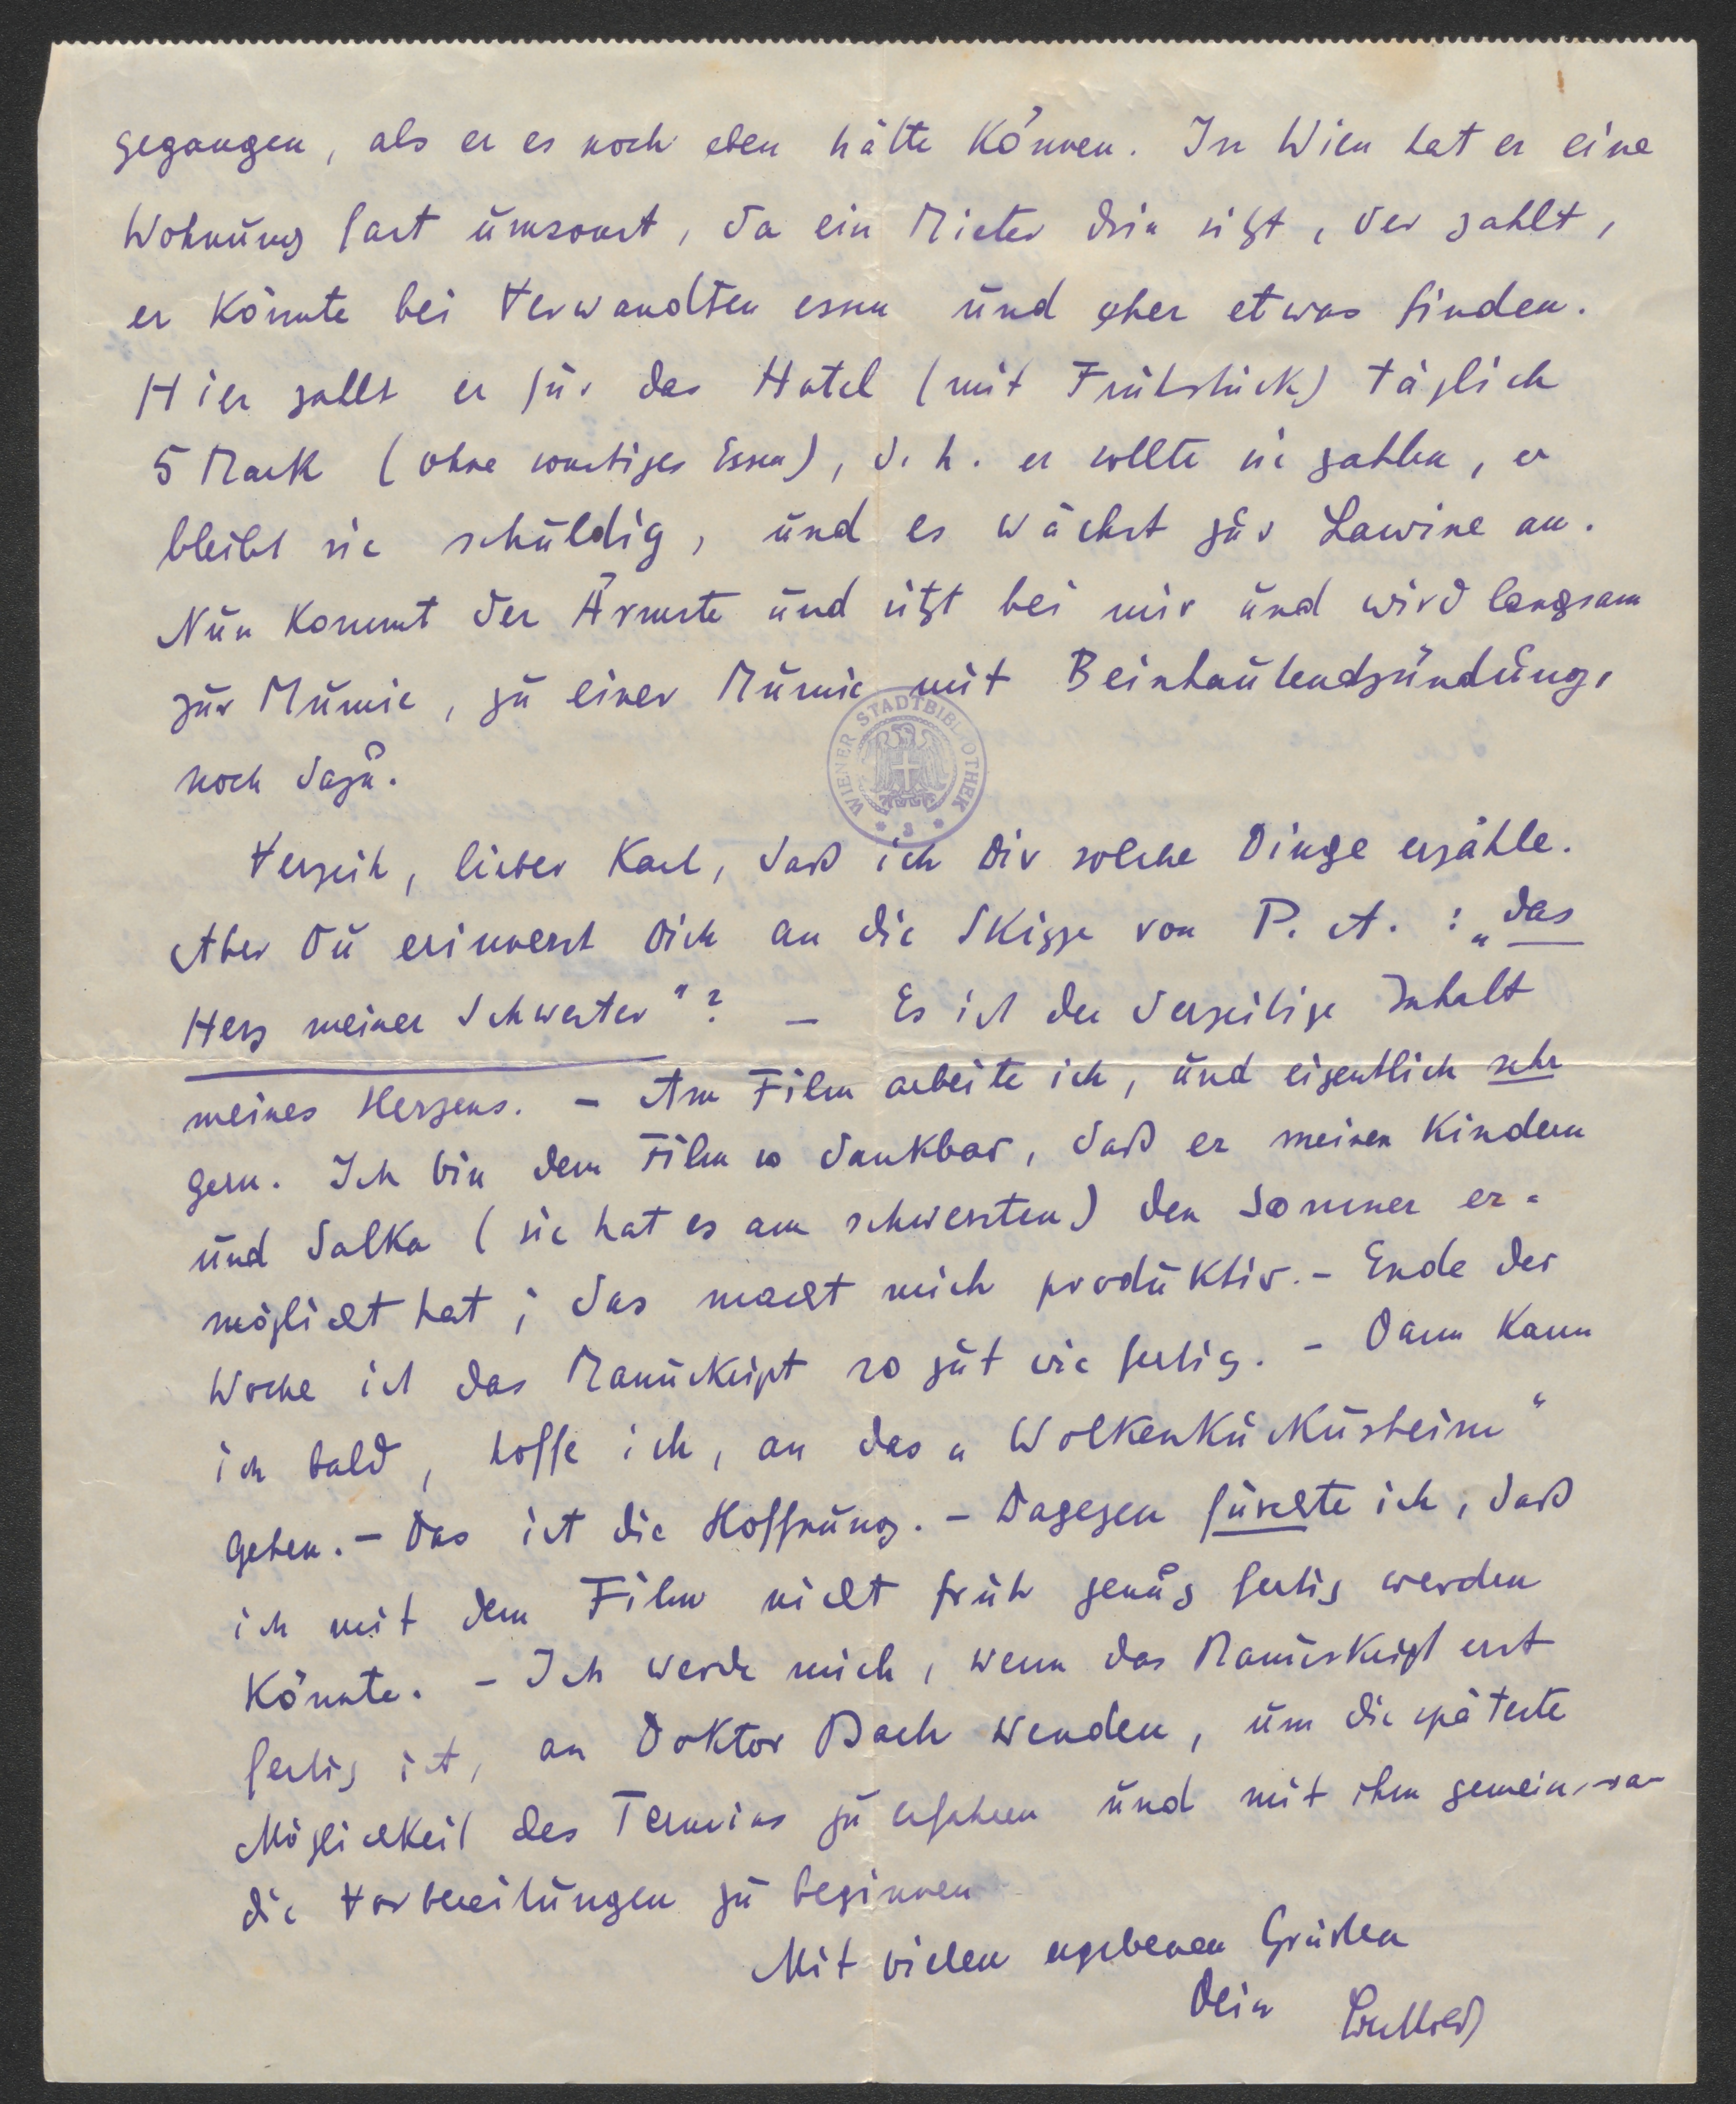 gegangen, als er es noch eben hätte können. In Wien hat er eine
Wohnung fast umsonst, da ein Mieter drin sitzt, der zahlt,
er könnte bei Verwandten essen und eher etwas finden.
Hier zahlt er für das Hotel (mit Frühstück) täglich
5 Mark (ohne sonstiges Essen), d. h. er sollte sie zahlen, er
bleibt sie schuldig, und es wächst zur Lawine an.
Nun kommt der Ärmste und sitzt bei mir und wird langsam
zur Mumie, zu einer Mumie mit Beinhautendzündung,
noch dazu.
WIENER STADTBIBLIOTHEK
* 3 *
Verzeih, lieber Karl, daß ich Dir solche Dinge erzähle.
Aber Du erinnerst Dich an die Skizze von P. A. : „das
Herz meiner Schwester"? – Es ist der derzeitige Inhalt
meines Herzens. – Am Film arbeite ich, und eigentlich sehr
gern. Ich bin dem Film so dankbar, daß er meinen Kindern
und Salka (sie hat es am schwersten) den Sommer er-
möglicht hat; das macht mich produktiv. – Ende der
Woche ist das Manuskript so gut wie fertig. – Dann kann
ich bald, hoffe ich, an das „Wolkenkukkusheim"
gehen. – Das ist die Hoffnung. – Dagegen fürchte ich, daß
ich mit dem Film nicht früh genug fertig werden
könnte. – Ich werde mich, wenn das Manuskript erst
fertig ist, an Doktor Bach wenden, um die späteste
Möglichkeit des Termins zu erfahren und mit ihm gemeinsa
die Vorbereitungen zu beginnen
Mit vielen ergebenen Grüßen
Dein Berthold